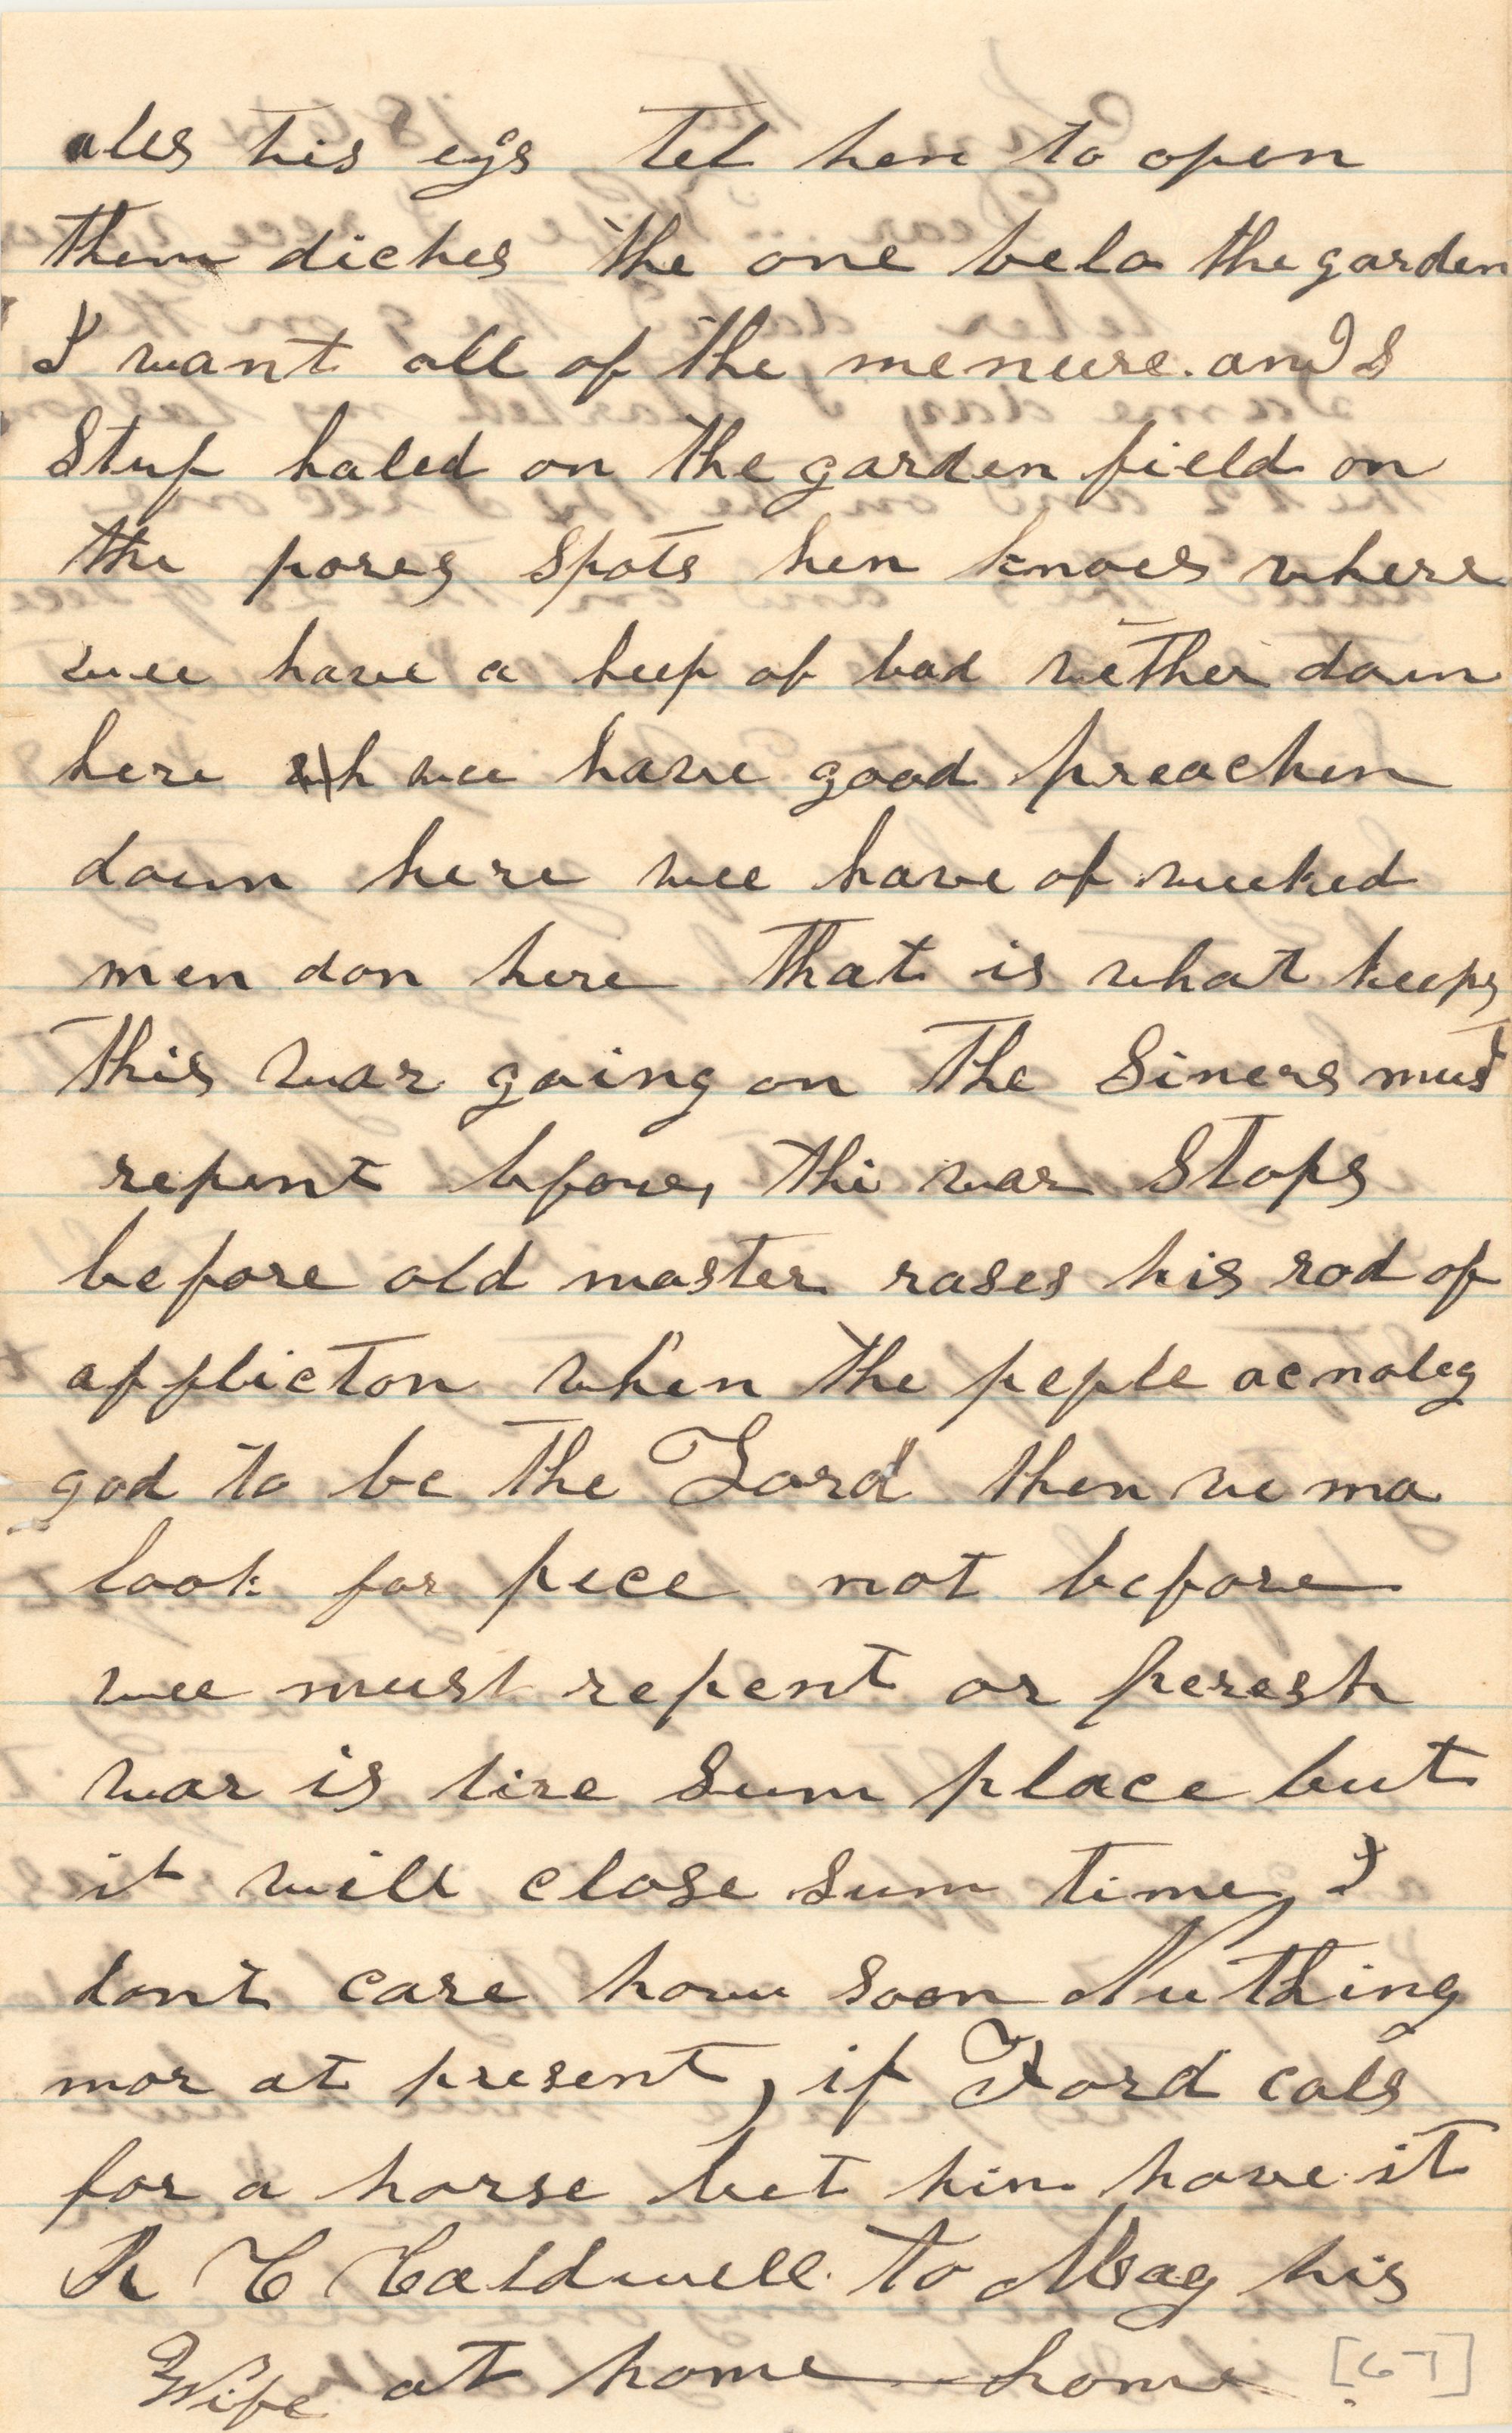 ales his eys tel hen to open
them diches the one belo the garden
I want all of the menure and
Stuf haled on the garden field on
the pores spots hen knoes where
wee have a heep of bad wether down
here wee have good preachen
down here wee have of wicked
men don here that is what keeps
this war going on The Siners must
repent before, the war Stops
before old master rases his rod of
afflicton when the peple acnoleg
god to be the Lord then we ma
look for pece not before
wee must repent or peresh
war is sum place but
it will close sum time I
dont care how soon Nuthing
mor at present, if Ford cals
for a horse let him have it
R C Caldwell to Mag his
Wife at home home [67]